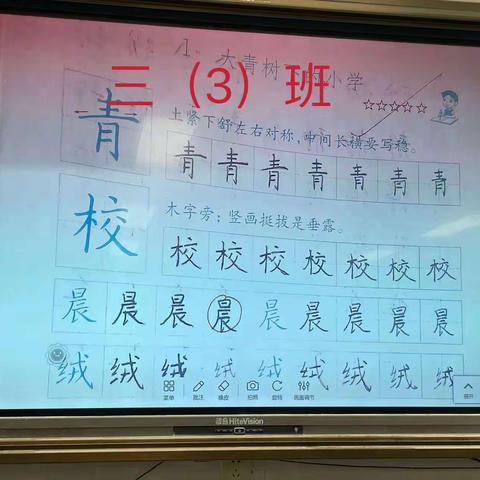 1. 大青树下的小学
三（3）班
土紧下舒左右对称,中间长横要写稳。
青
青 青 青 青 青 青 青
木字旁：竖画挺拔是垂露。
校
校 校 校 校 校 校 校
晨 晨 晨 晨 晨 晨 晨 晨 晨
绒 绒 绒 绒 绒 绒 绒 绒 绒
菜单 批注 橡皮 拍照 旋转 画面调节 展开
HiteVision